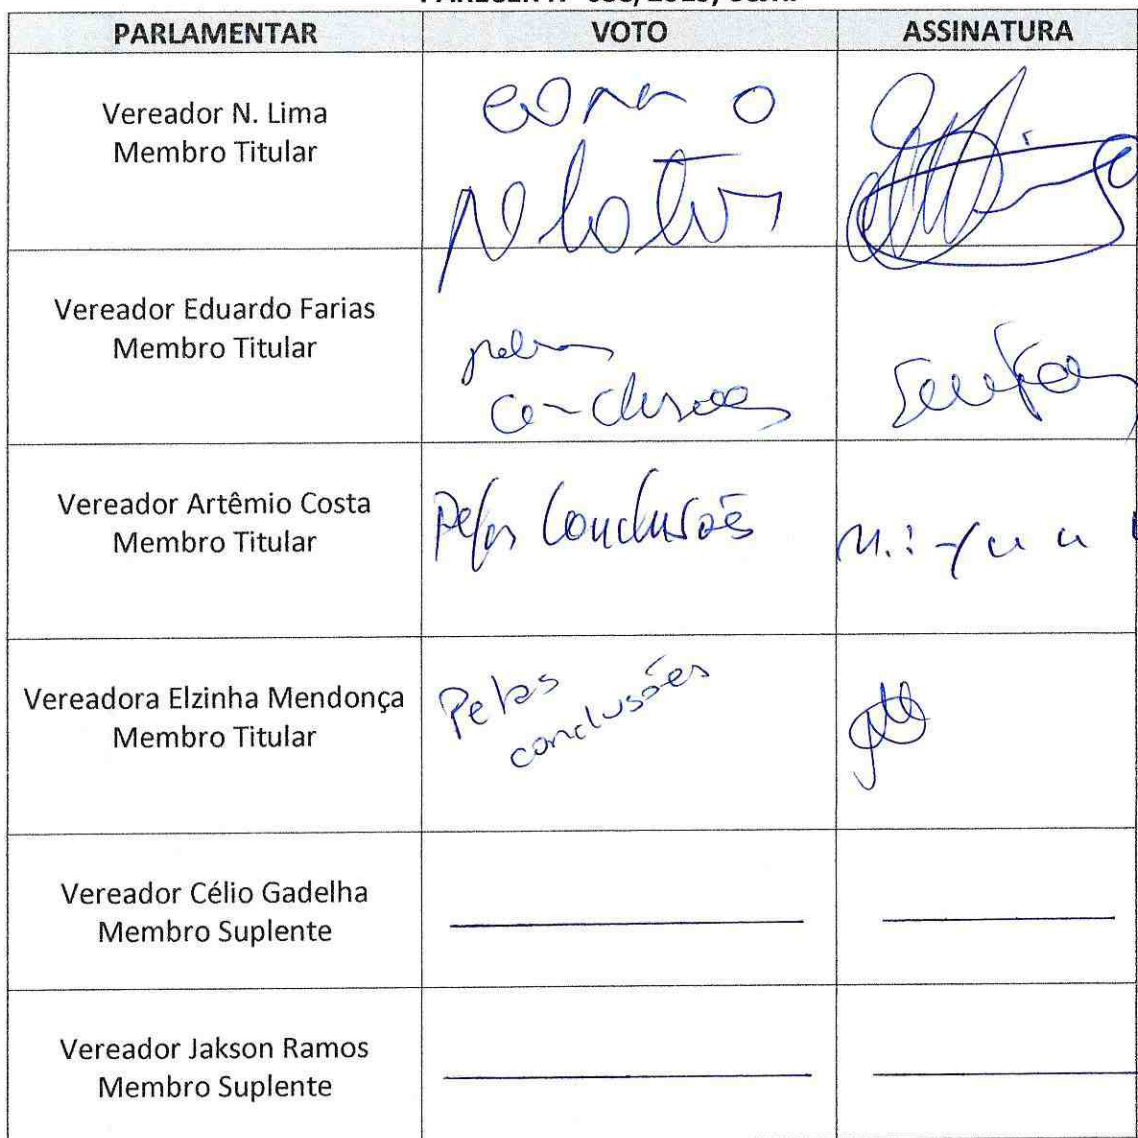 PARLAMENTAR VOTO ASSINATURA
Vereador N. Lima
Membro Titular
com o
relator
Vereador Eduardo Farias
Membro Titular
pelas
conclusões
Vereador Artêmio Costa
Membro Titular
Pelas Conclusões
Vereadora Elzinha Mendonça
Membro Titular
Pelas
conclusões
Vereador Célio Gadelha
Membro Suplente
Vereador Jakson Ramos
Membro Suplente